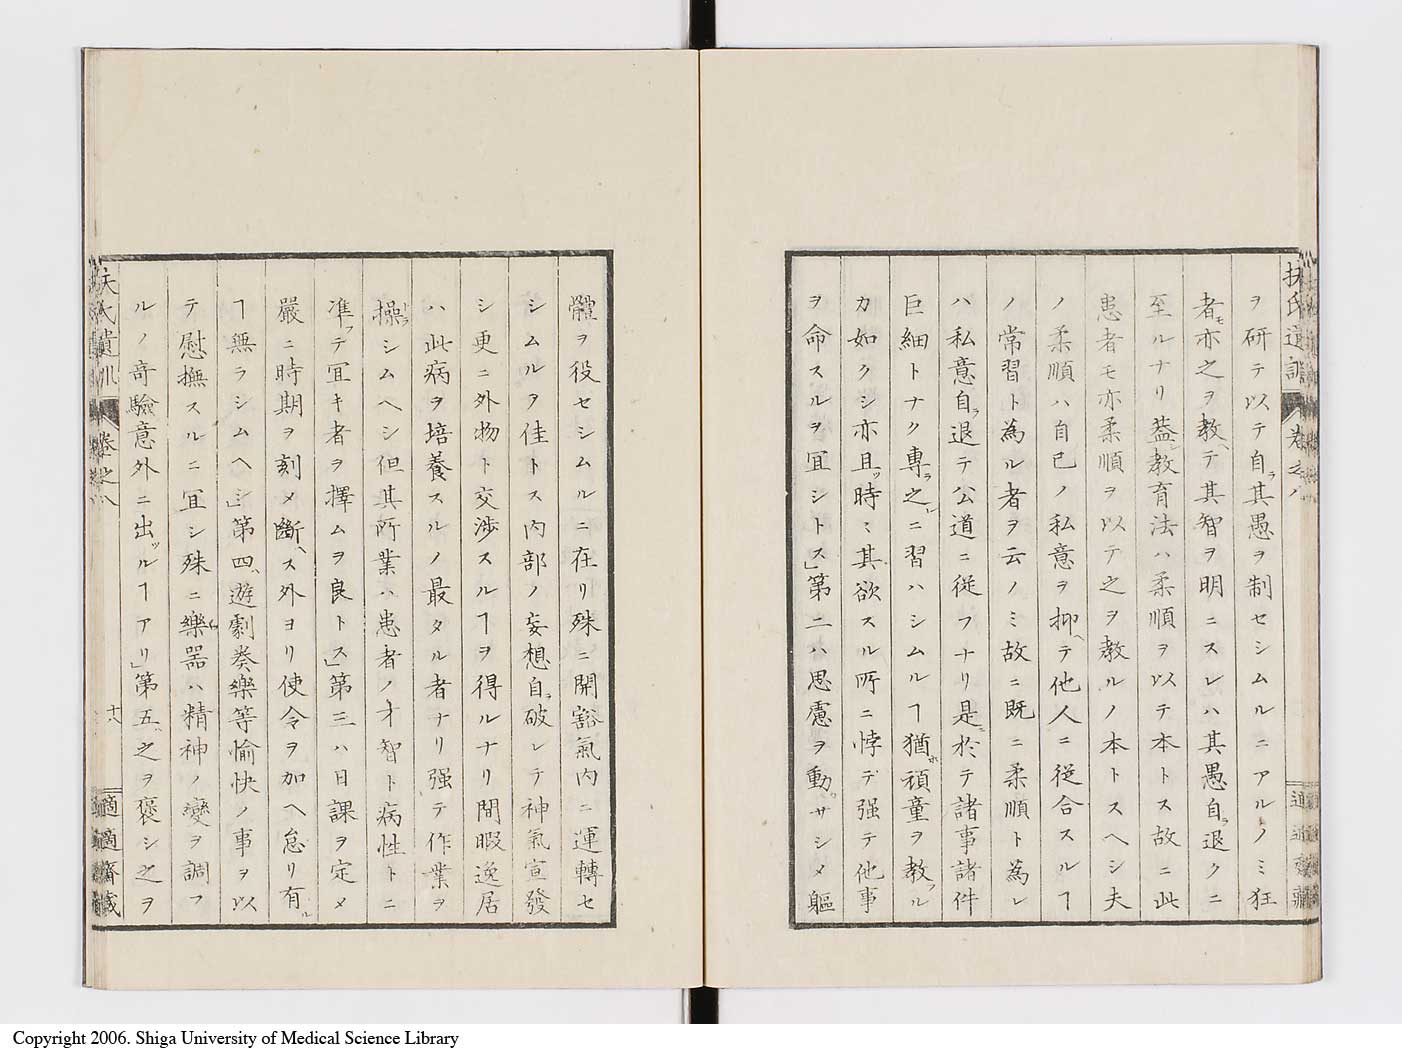 扶氏遺訓 卷之八
適適齋藏
ヲ研テ以テ自ラ其愚ヲ制セシムルニアルノミ狂
者モ亦之ヲ教ヘテ其智ヲ明ニスレハ其愚自ラ退クニ
至ルナリ蓋シ教育法ハ柔順ヲ以テ本トス故ニ此
患者モ亦柔順ヲ以テ之ヲ教ルノ本トスヘシ夫
ノ柔順ハ自己ノ私意ヲ抑ヘテ他人ニ従合スルヿ
ノ常習ト為ル者ヲ云ノミ故ニ既ニ柔順ト為レ
ハ私意自ラ退テ公道ニ従フナリ是ニ於テ諸事諸件
巨細トナク專ラ之レニ習ハシムルヿ猶ホ頑童ヲ教フル
カ如クシ亦且ツ時ミ其欲スル所ニ悖テ强テ他事
ヲ命スルヲ冝シトス」第二ハ思慮ヲ動カサシメ軀
體ヲ役セシムルニ在リ殊ニ開豁氣内ニ運轉セ
シムルヲ佳トス内部ノ妄想自ラ破レテ神氣宣發
シ更ニ外物ト交渉スルヿヲ得ルナリ間暇逸居
ハ此病ヲ培養スルノ最タル者ナリ强テ作業ヲ
操ラシムヘシ但其所業ハ患者ノ才智ト病性トニ
准フテ冝キ者ヲ擇ムヲ良トス」第三ハ日課ヲ定メ
嚴ニ時期ヲ刻メ斷ヘス外ヨリ使令ヲ加ヘ怠リ有ル
ヿ無ラシムヘシ」第四ハ遊劇奏樂等愉快ノ事ヲ以
テ慰撫スルニ冝シ殊ニ樂器ハ精神ノ變ヲ調フ
ルノ奇驗意外ニ出ツルヿアリ」第五ハ之ヲ褒シ之ヲ
扶氏遺訓 卷之八
十八
適適齋藏
Copyright 2006. Shiga University of Medical Science Library